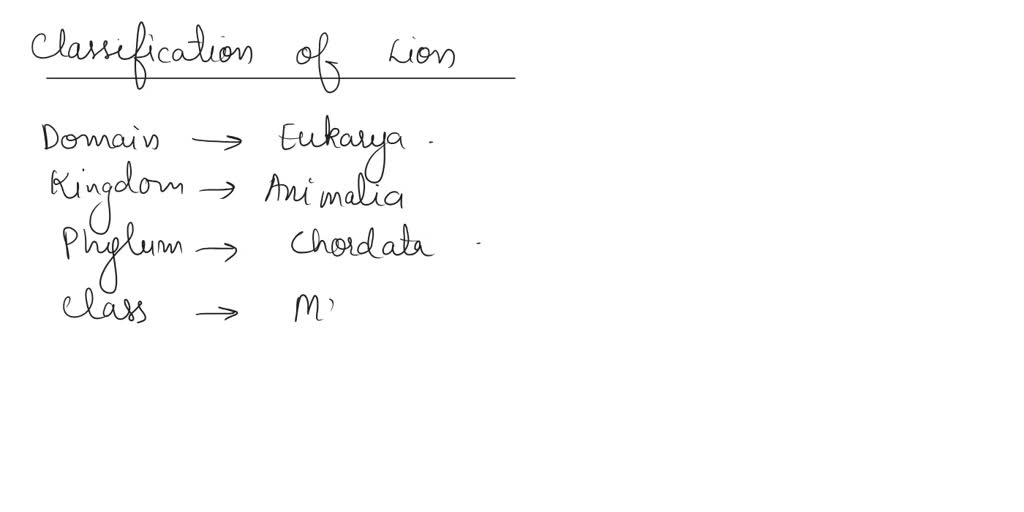 Classification of Lion
Domain → Eukarya.
Kingdom → Animalia
Phylum → Chordata
Class → M